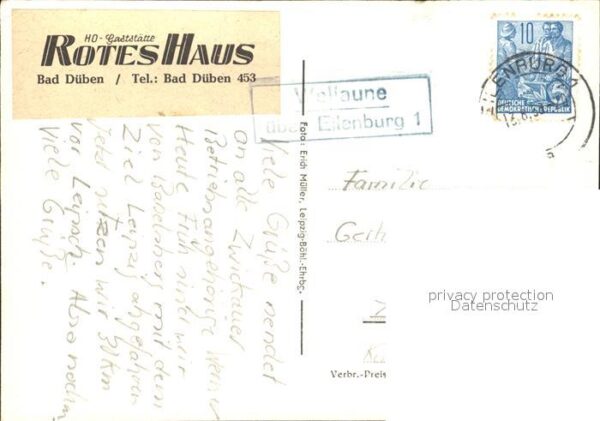 HO-Gaststätte
ROTES HAUS
Bad Düben / Tel.: Bad Düben 453
Wellaune
über Eilenburg 1
10
DEUTSCHE
DEMOKRATISCHE REPUBLIK
EILENBURG
Viele Grüße sendet
an alle Zwickauer
Betriebsangehörige
Heute früh sind wir
von Babelsberg mit dem
Ziel Leipzig abgefahren
Jetzt sitzen wir 30 km
vor Leipzig. Also nochm.
Viele Grüße.
Foto: Erich Müller, Leipzig-Böhl.-Ehrbg.
Familie
Gerh
Verbr.-Preis
privacy protection
Datenschutz